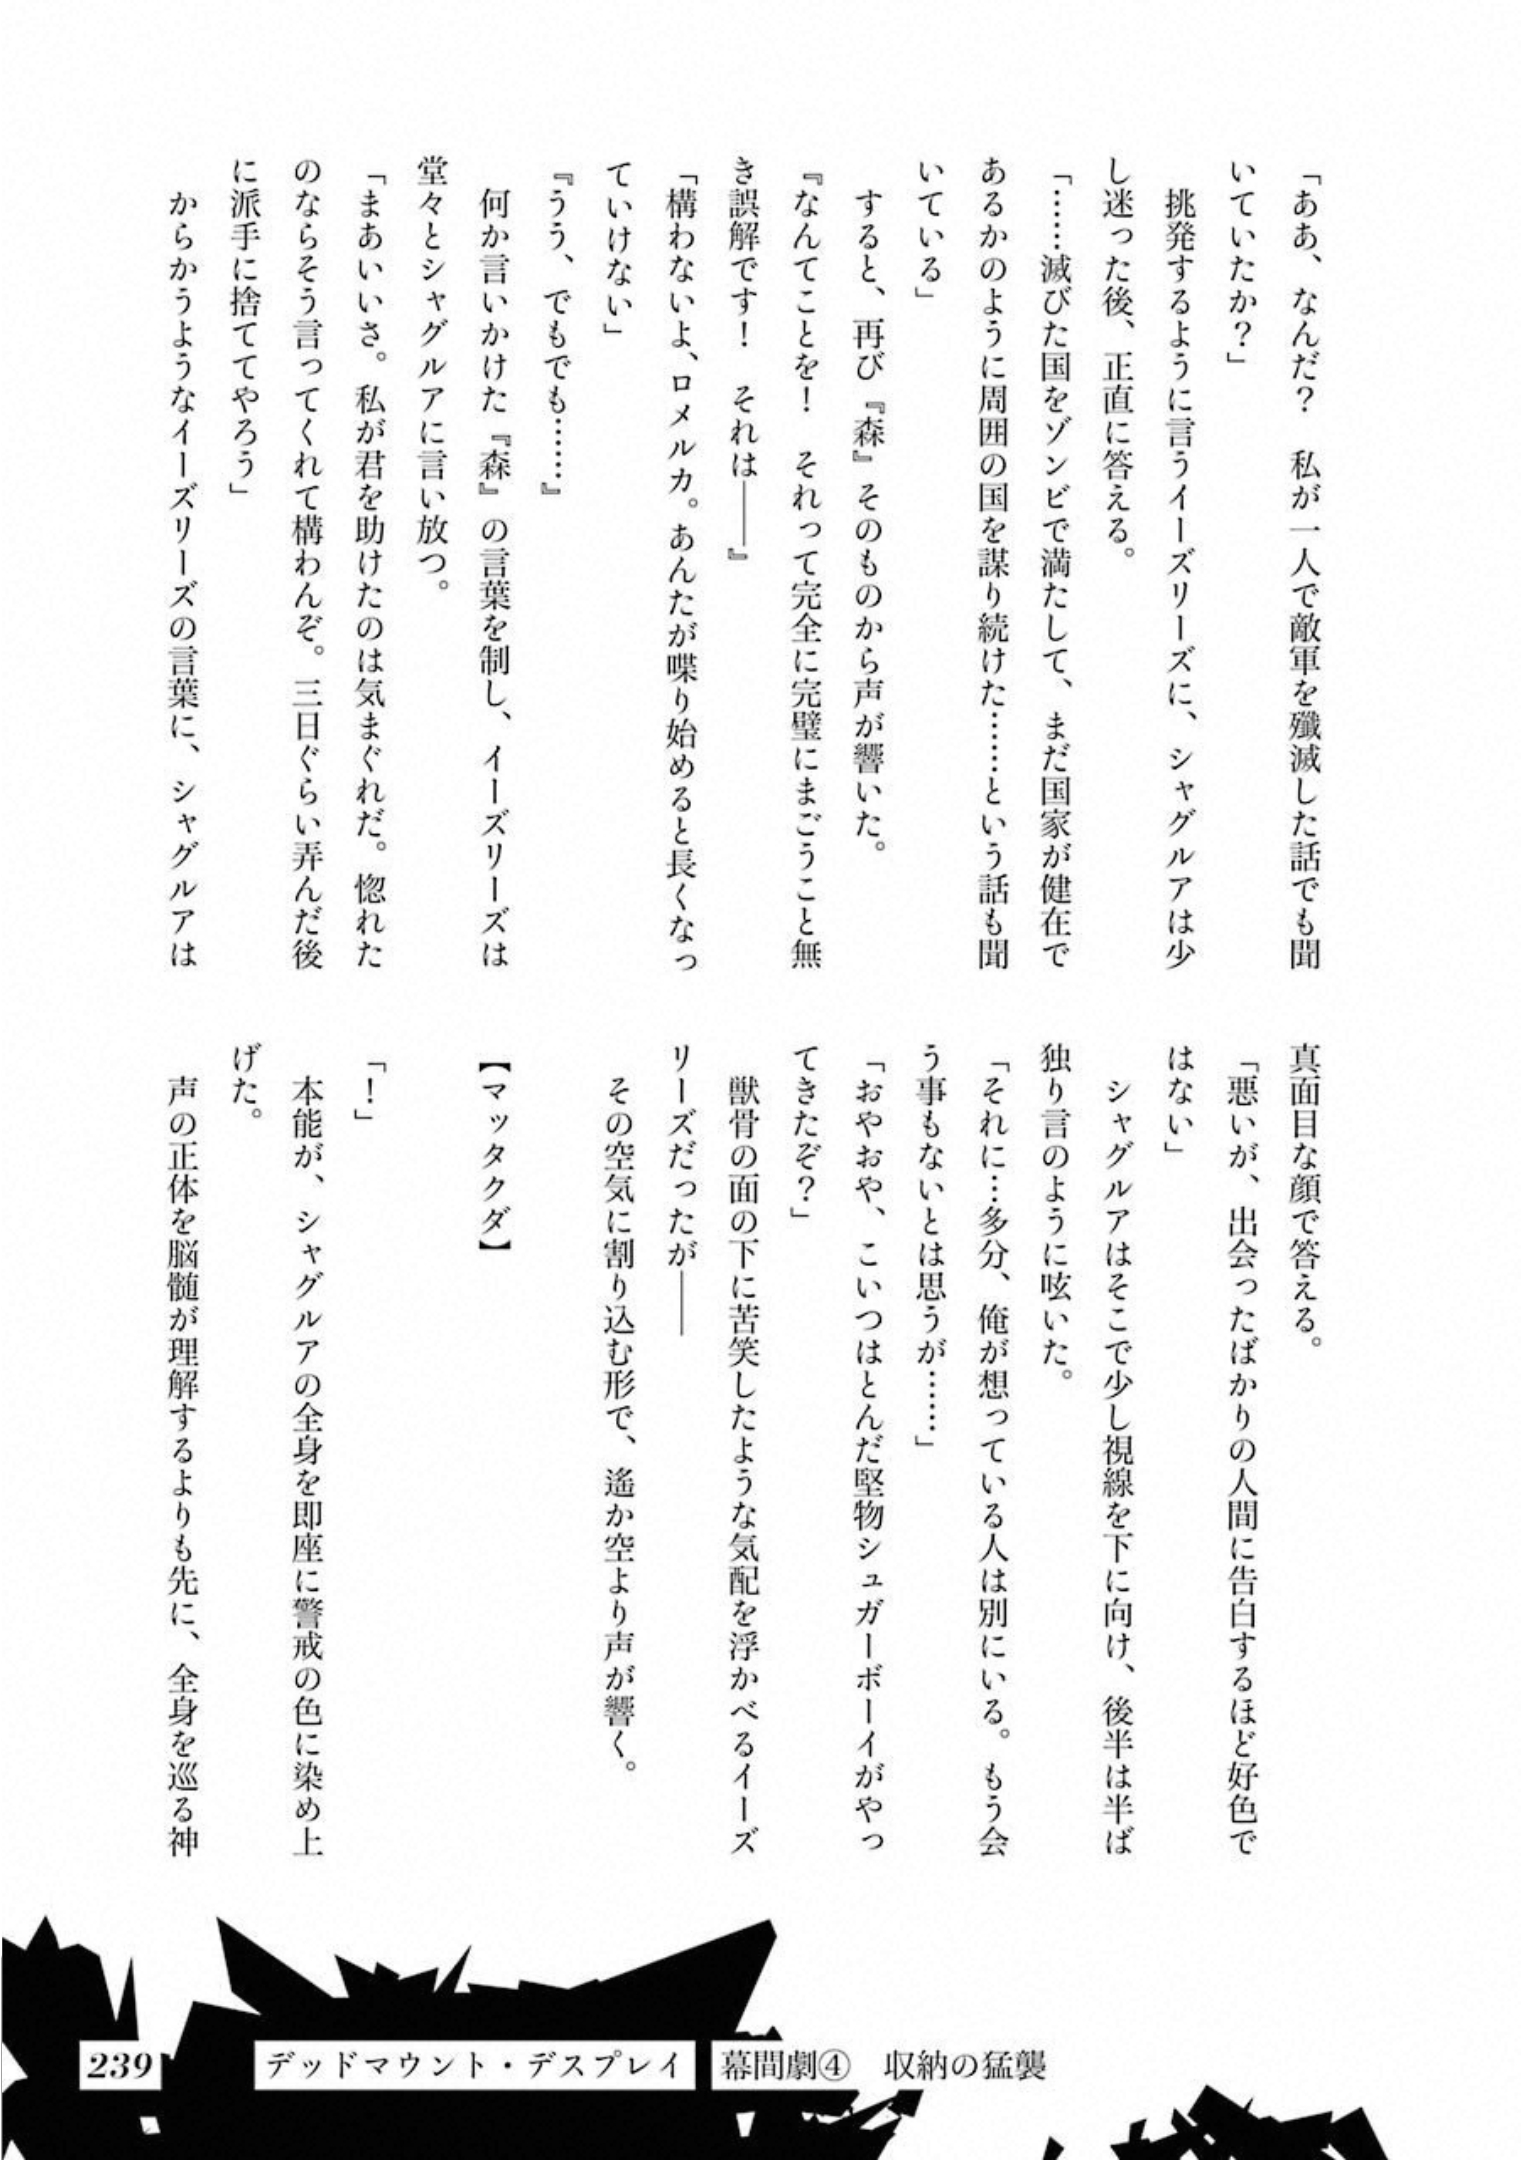 「ああ、なんだ？　私が一人で敵軍を殲滅した話でも聞
いていたか？」
　挑発するように言うイーズリーズに、シャグルアは少
し迷った後、正直に答える。
「……滅びた国をゾンビで満たして、まだ国家が健在で
あるかのように周囲の国を謀り続けた……という話も聞
いている」
　すると、再び『森』そのものから声が響いた。
『なんてことを！　それって完全に完璧にまごうこと無
き誤解です！　それは――』
「構わないよ、ロメルカ。あんたが喋り始めると長くなっ
ていけない」
『うう、でもでも……』
　何か言いかけた『森』の言葉を制し、イーズリーズは
堂々とシャグルアに言い放つ。
「まあいいさ。私が君を助けたのは気まぐれだ。惚れた
のならそう言ってくれて構わんぞ。三日ぐらい弄んだ後
に派手に捨ててやろう」
　からかうようなイーズリーズの言葉に、シャグルアは
真面目な顔で答える。
「悪いが、出会ったばかりの人間に告白するほど好色で
はない」
　シャグルアはそこで少し視線を下に向け、後半は半ば
独り言のように呟いた。
「それに…多分、俺が想っている人は別にいる。もう会
う事もないとは思うが……」
「おやおや、こいつはとんだ堅物シュガーボーイがやっ
てきたぞ？」
　獣骨の面の下に苦笑したような気配を浮かべるイーズ
リーズだったが――
　その空気に割り込む形で、遙か空より声が響く。
【マッタクダ】
「！」
　本能が、シャグルアの全身を即座に警戒の色に染め上
げた。
　声の正体を脳髄が理解するよりも先に、全身を巡る神
239
デッドマウント・デスプレイ
幕間劇④　収納の猛襲